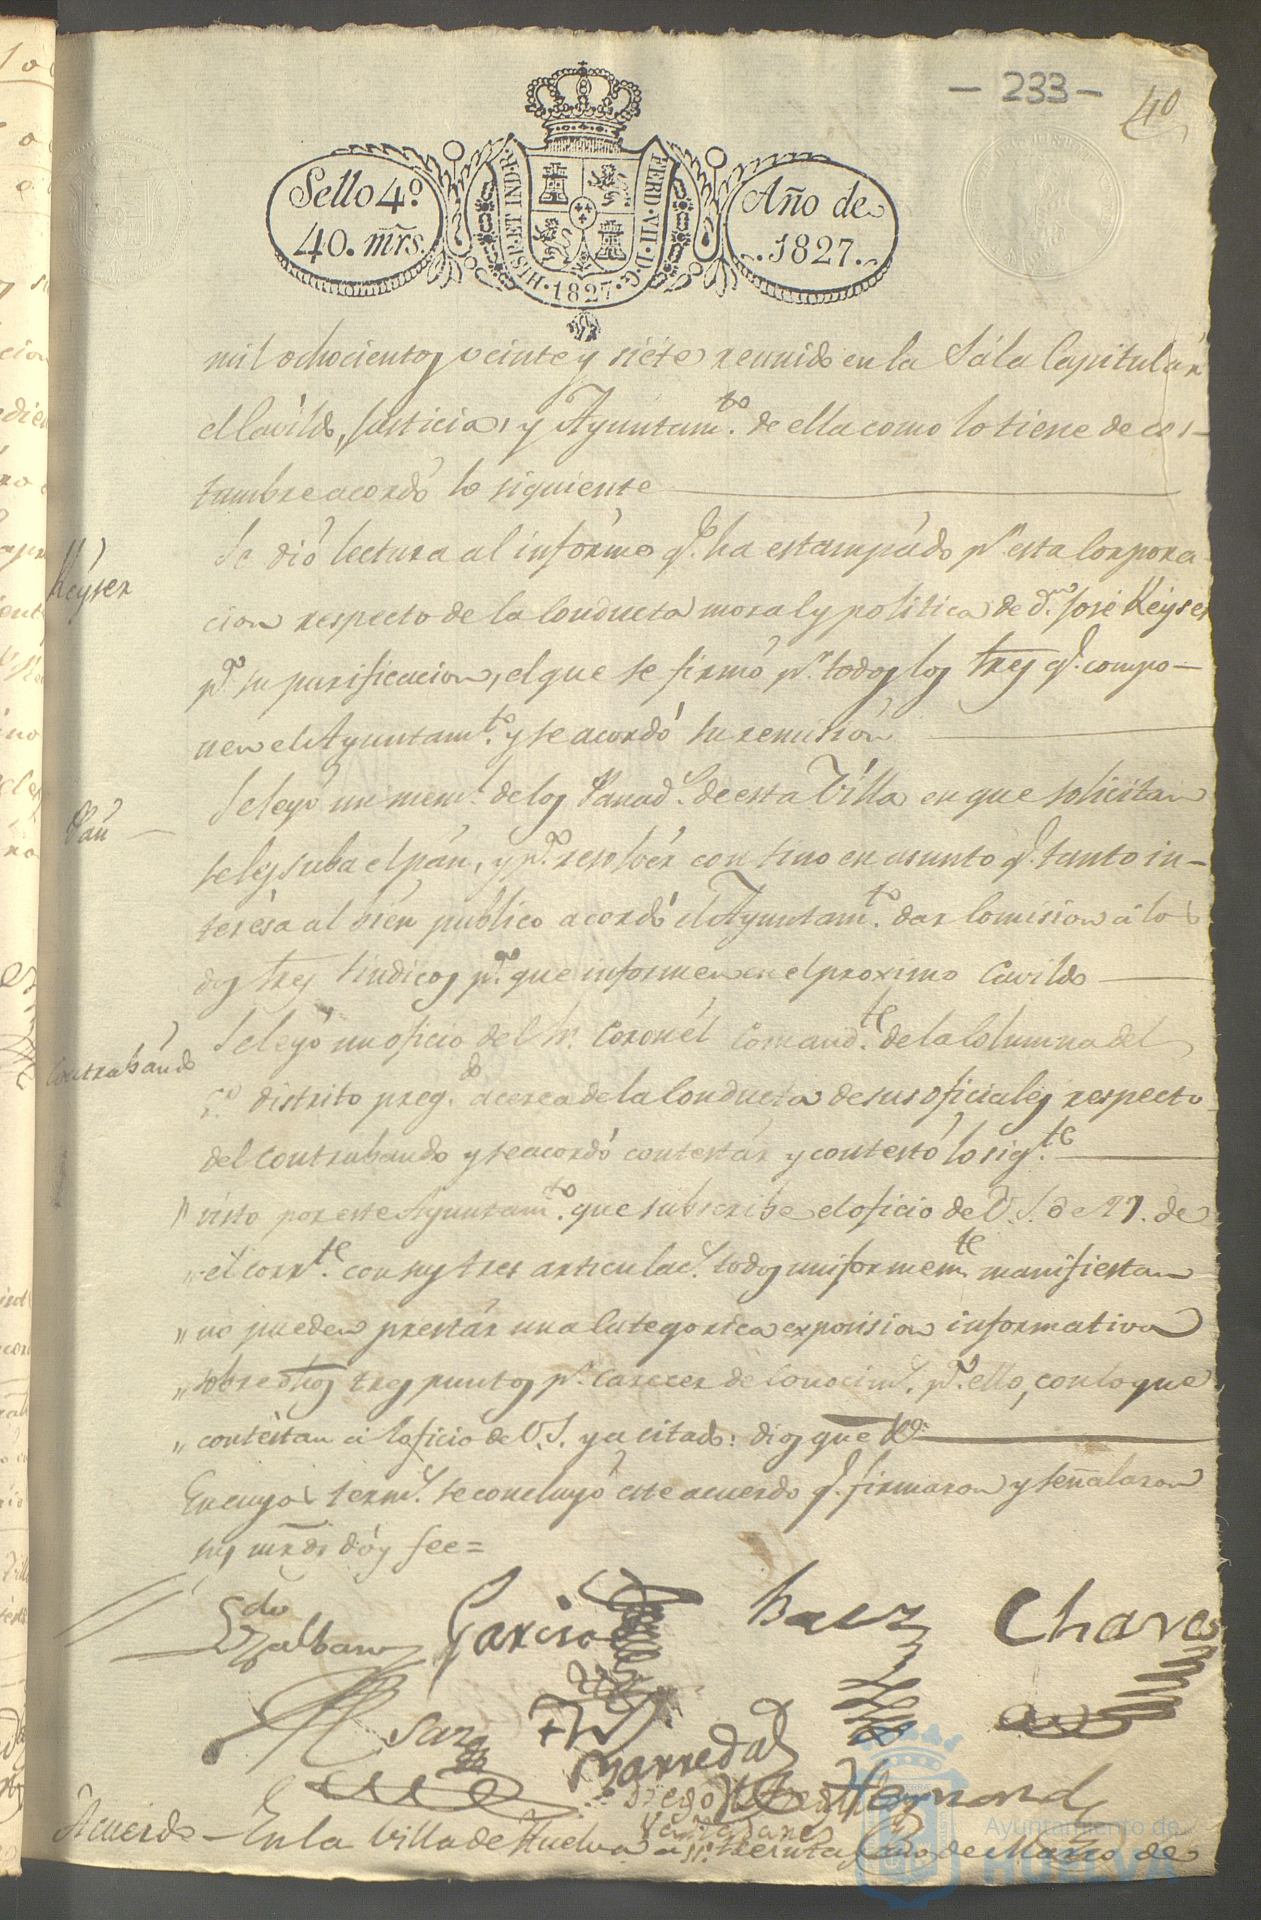 - 233 -
40
Sello 4º
40. mrs
HISP. ET IND. R. 1827. FERD. VII. D. G.
Año de
1827.
mil ochocientos veinte y siete reunido en la Sala Capitulár
el Cavildo, Justicia, y Ayuntamto. de ella como lo tiene de cos-
tumbre acordó lo siguiente
Keyser
Se dió lectura al informe q.e ha estampádo pr. esta Corpora-
cion respecto de la Conducta moral y politica de Dn. José Keyser
pa. su purificacion, el que se firmó pr. todos los Sres q.e compo-
nen el Ayuntamto. y se acordó su remision
Pan
Se leyó un meml. de los Panads. de esta Villa en que solicitan
se les suba el pán, y pa. resolvér con tino en asunto q.e tanto in-
terésa al bien publico acordó el Ayuntamto. dar Comision á los
dos Sres Sindicos pa. que informen en el proximo Cavildo
Contrabándo
Se leyó un oficio del Sr. Coronél Comandte. de la Columna del
distrito pregdo. acerca de la Conducta de sus oficiales respecto
del Contrabando y se acordó contestár y contestó lo sigte.
" visto por este Ayuntamto. que subscribe el oficio de V. S. de 27. de
" el corrte. con sus tres articulacs. todos uniformemte manifiestan
" no pueden prestár una Categorica exposision informativa
" sobre dhos tres puntos pr. carecer de Conocimt. pa. ello, con lo que
" contéstan al oficio de V. S. ya citado: dios que &a.
En cuyos terms. se concluyó este acuerdo q.e firmaron y señalaron
sus mrzds doy fee =
Ldo
Garcia
Baez
Chaves
Saz
Barreda
Hernandz
Diego
Acuerdo - En la Villa de Huelva a treinta y uno de Marzo de
Ayuntamiento de
HUELVA